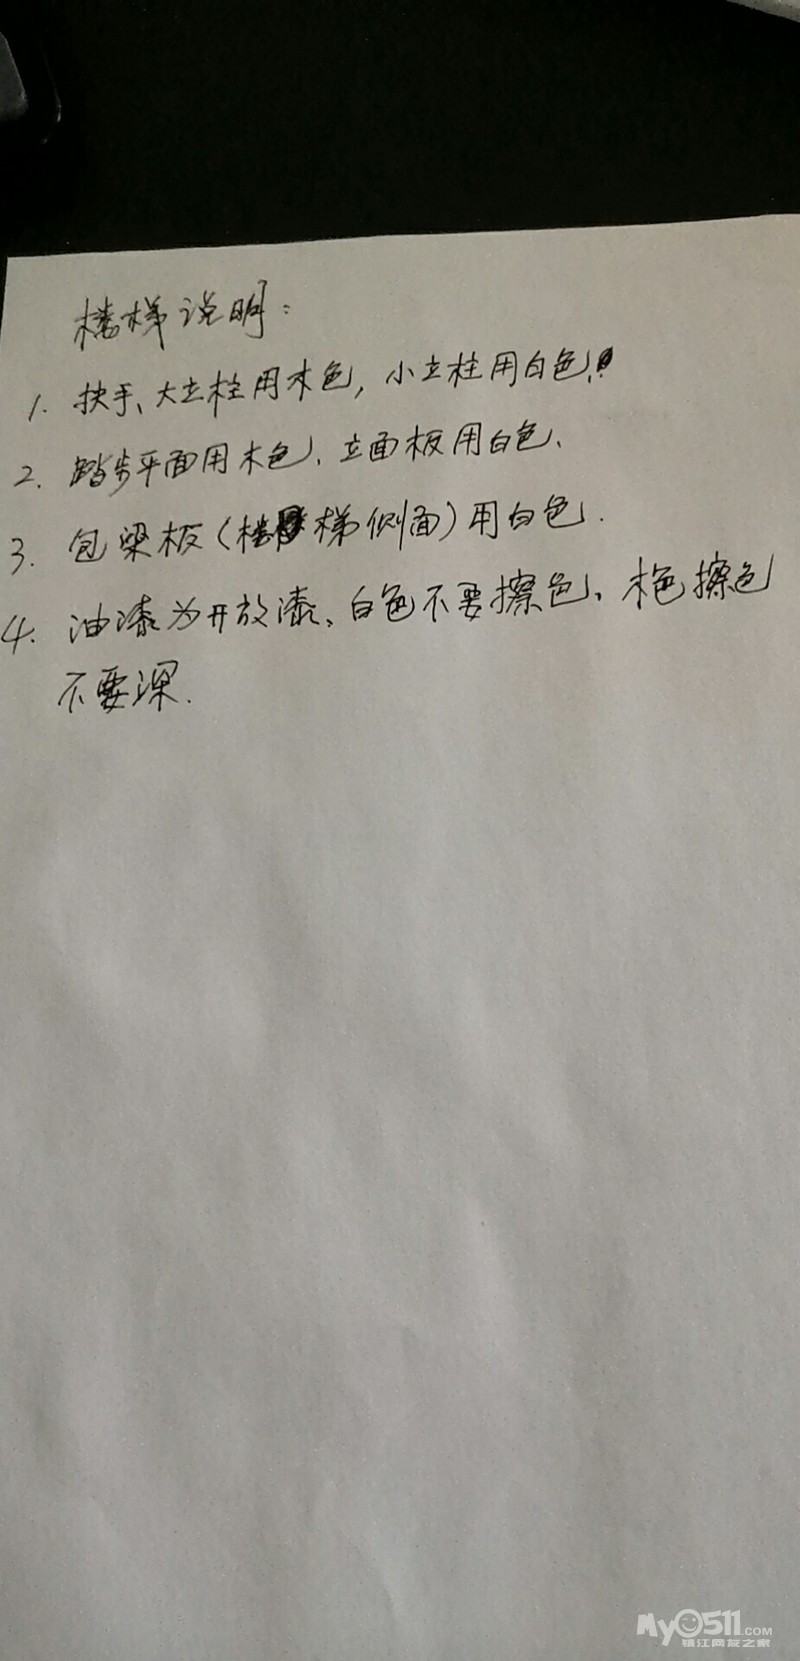 楼梯说明：
1. 扶手、大立柱用木色，小立柱用白色、
2. 踏步平面用木色、立面板用白色、
3. 包梁板（楼梯侧面）用白色.
4. 油漆为开放漆、白色不要擦色、木色擦色
不要深.
My0511.COM
镇江网友之家